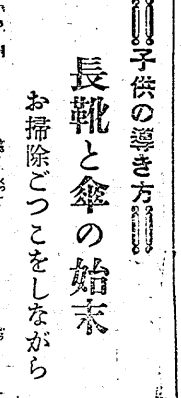 子供の導き方
長靴と傘の始末
お掃除ごつこをしながら